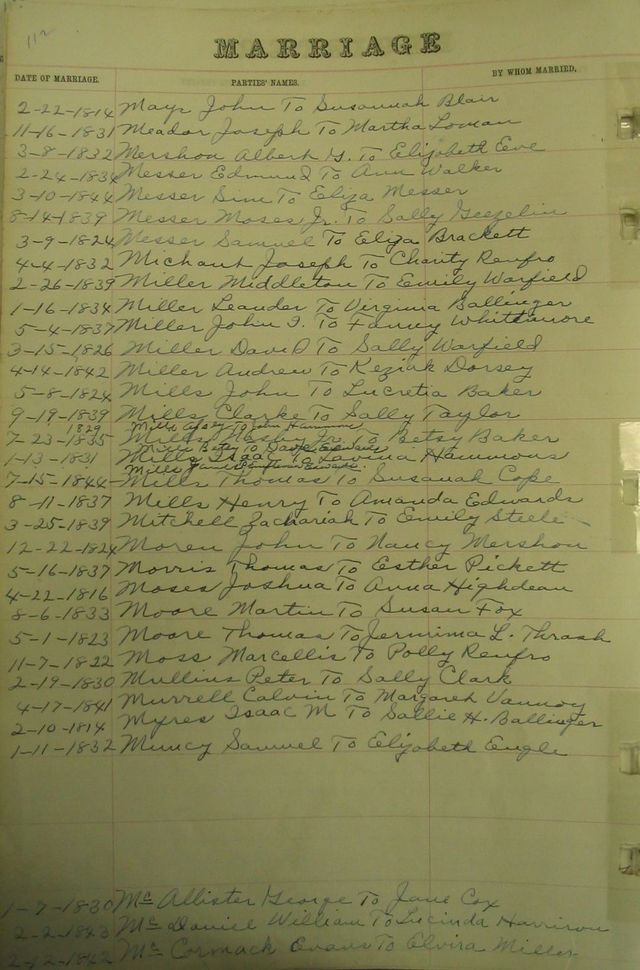 112
MARRIAGE
DATE OF MARRIAGE. PARTIES' NAMES. BY WHOM MARRIED.
2-22-1814 Mays John To Susannah Blair
11-16-1831 Meador Joseph To Martha Loman
3-8-1832 Mershon Albert G. To Elizabeth Eve
2-24-1834 Messer Edmund To Ann Walker
3-10-1844 Messer Sim To Eliza Messer
8-14-1839 Messer Moses Jr. To Sally
3-9-1824 Messer Samuel To Eliza Brackett
4-4-1832 Michaux Joseph To Charity Renfro
2-26-1839 Miller Middleton To Emily Warfield
1-16-1834 Miller Leander To Virginia Ballinger
5-4-1837 Miller John F. To Fanny Whittemore
3-15-1826 Miller David To Sally Warfield
4-14-1842 Miller Andrew To Keziah Dorsey
5-8-1824 Mills John To Lucretia Baker
9-19-1839 Mills Clarke To Sally Taylor
1829 Mills To John Hammons
7-23-1835 Mills Jr. To Betsy Baker
Mills Betty To David Edwards
1-13-1831 Mills Isaac To Hammons
Mills James
7-15-1844 Mills Thomas To Susanah Cope
8-11-1837 Mills Henry To Amanda Edwards
3-25-1839 Mitchell Zachariah To Emily Steele
12-22-1824 Moren John To Nancy Mershon
5-16-1837 Morris Thomas To Esther Pickett
4-22-1816 Moses Joshua To Anna Highdean
8-6-1833 Moore Martin To Susan Fox
5-1-1823 Moore Thomas To Jermima L. Thrash
11-7-1822 Moss Marcellis To Polly Renfro
2-19-1830 Mullins Peter To Sally Clark
4-17-1841 Murrell Calvin To Margaret Vannoy
2-10-1814 Myres Isaac M To Sallie H. Ballinger
1-11-1832 Muncy Samuel To Elizabeth Engle
1-7-1830 Mc Allister George To Jane Cox
2-2-1843 Mc Daniel William To Lucinda Harrison
2-12-1842 Mc Cormack Evans To Elvira Miller